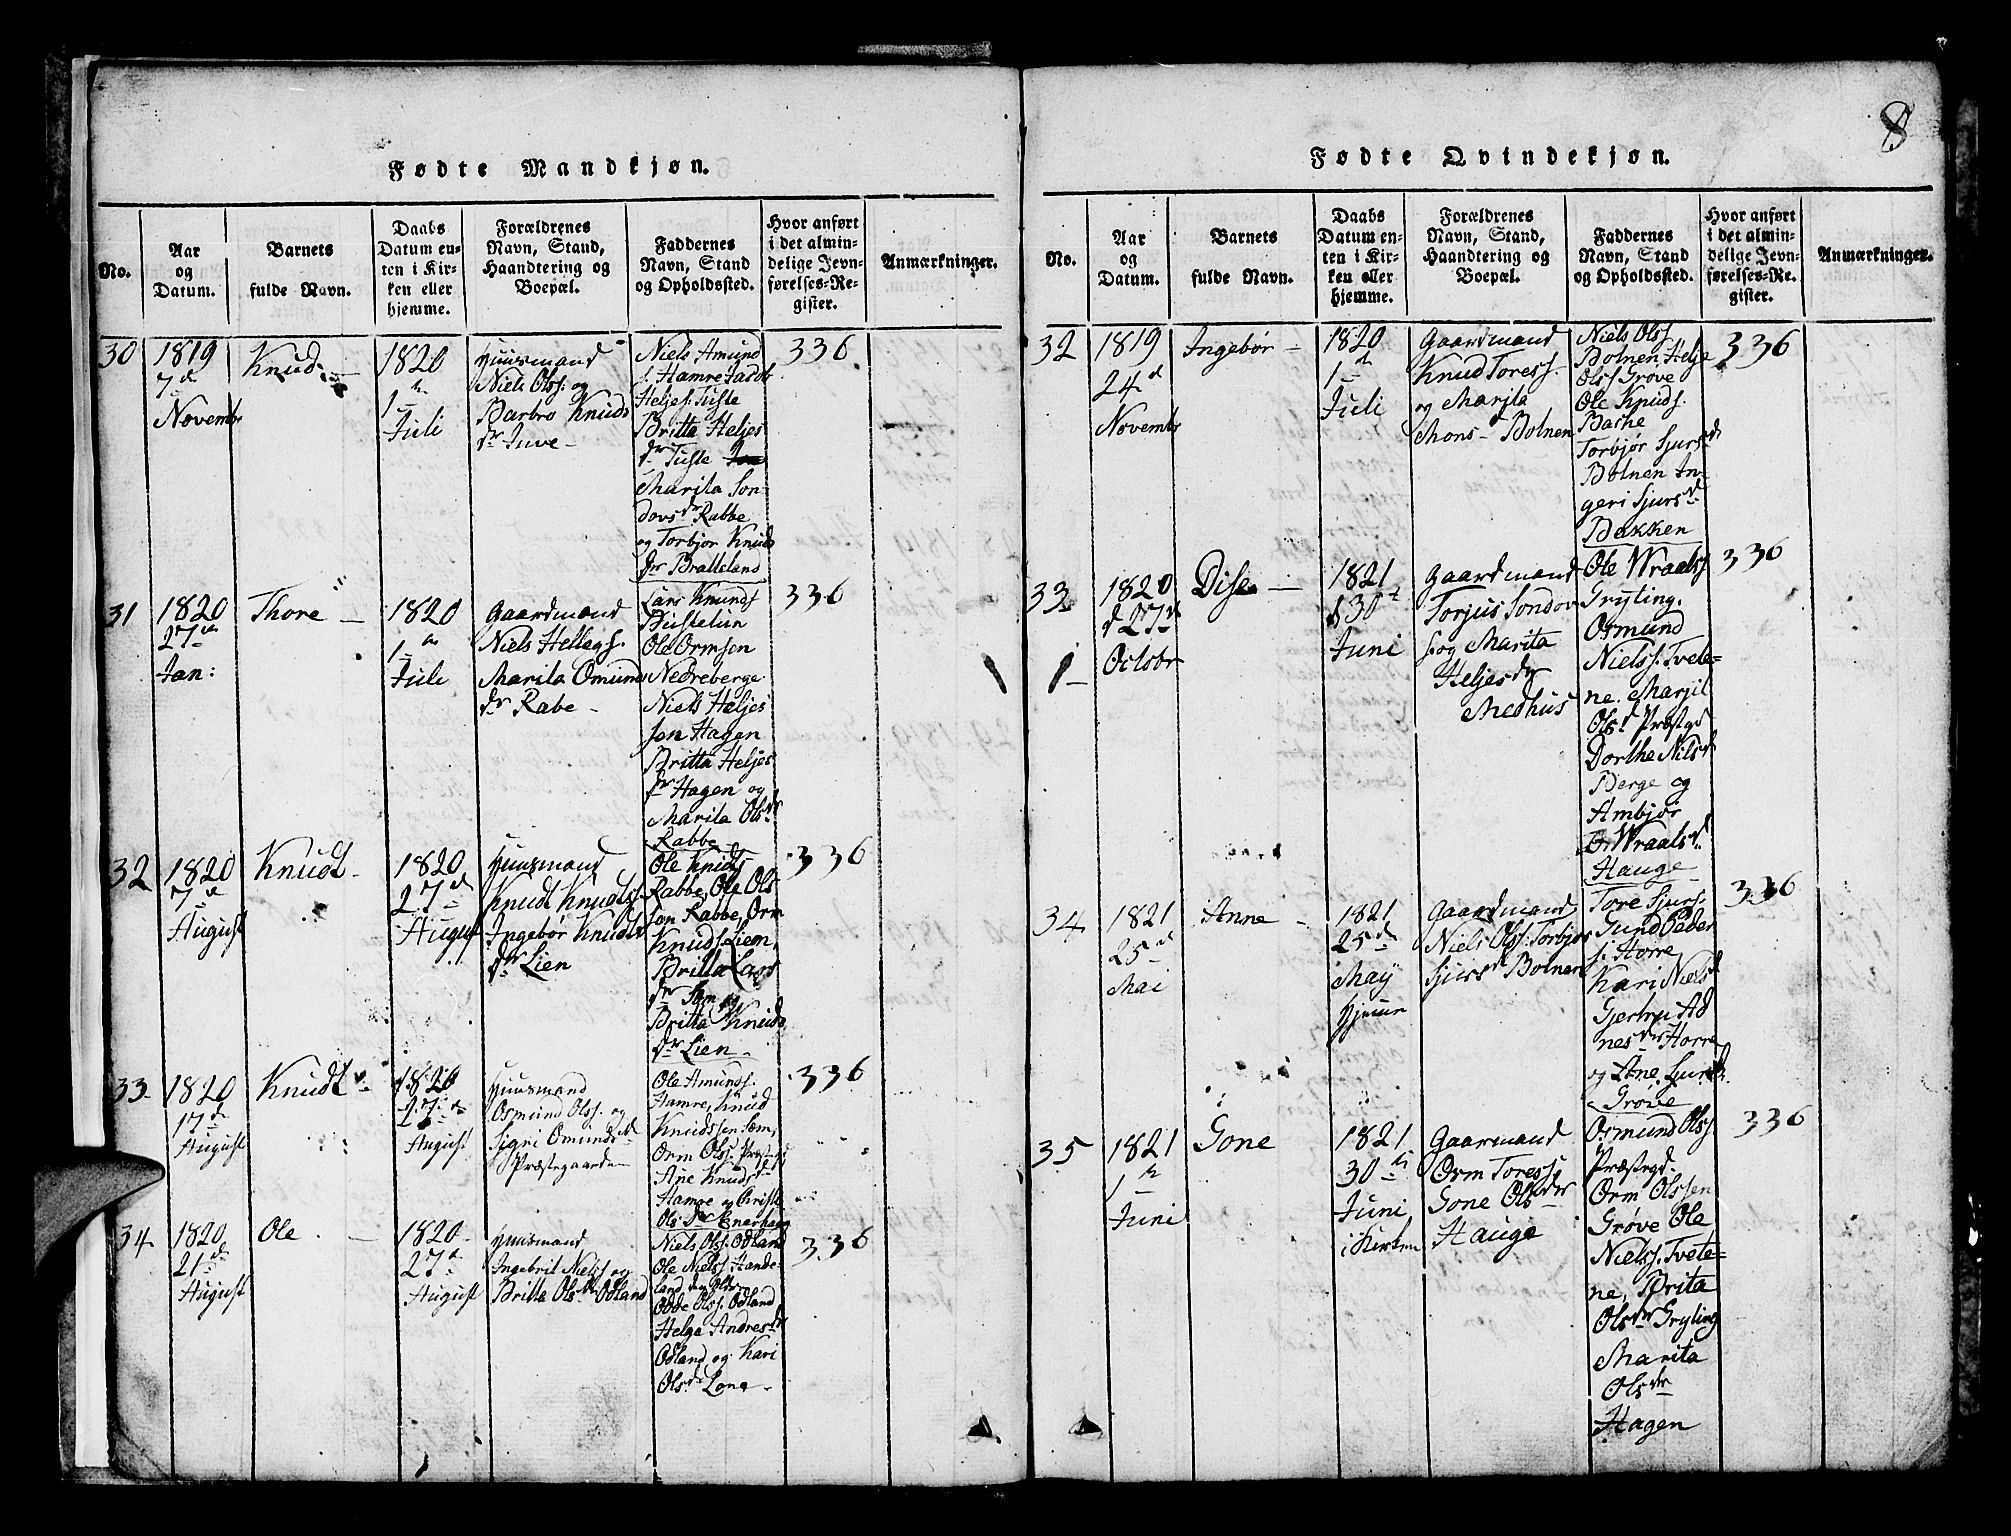 8
Fødte Mandkjøn.
No.
Aar
og
Datum.
Barnets
fulde Navn.
Daabs
Datum en-
ten i Kir-
ken eller
hjemme.
Forældrenes
Navn, Stand,
Haandtering og
Boepæl.
Faddernes
Navn, Stand
og Opholdssted.
Hvor anført
i det almin-
delige Jevn-
førelses-Re-
gister.
Anmærkninger.
30
1819
7de
Novembr
Knud
1820
1te
Juli
Huusmand
Niels Olss. og
Barbro Knuds
dr Juve
Niels Amund
s. Hamre Jacob
Heljes. Tufte
Britta Heljes
dr Tufte
Marita Son
dovsdr Rabbe
og Torbjor Knuds
dr Bratteland
336
31
1820
27de
Jan:
Thore
1820
1te
Juli
Gaardmand
Niels Hellegs.
Marita Omunds
dr Rabe
Lars Knuds
Ole Ormsen
Nedreberge
Niels Heljes
sen Hagen
Britta Heljes
dr Hagen og
Marita Olsdr
Rabbe
336
32
1820
7de
August
Knudt
1820
27de
August
Huusmand
Knudt Knudts.
Ingebør Knudts
dr Lien
Ole Knuds
Rabbe, Ole Ols
son Rabbe, Orm
Knuds. Liem,
Britta Lars
dr Sæm og
Britta Knuds
dr Lien
336
33
1820
17de
August
Knudt
1820
27de
August
Huusmand
Osmund Olss. og
Sigri Omundsdr
Præstegaarden
Ole Amunds.
Hamre, Knud
Knudssen Sæm,
Orm Olss. Præstegd
Ane Knudsdr
Hamre og Christi
Olsdr Enerhaug
336
34
1820
21de
August
Ole
1820
27de
August
Huusmand
Ingebrit Nielss og
Britta Olsdr Odland
Niels Olss. Odland
Ole Nielss Hande-
land den Oldre
Odde Olss. Odland
Helga Andresdr
Odland og Kari
Olsdr Lone
336
Fødte Qvindekjøn.
No.
Aar
og
Datum.
Barnets
fulde Navn.
Daabs
Datum en-
ten i Kir-
ken eller
hjemme.
Forældrenes
Navn, Stand,
Haandtering og
Boepæl.
Faddernes
Navn, Stand
og Opholdssted.
Hvor anført
i det almin-
delige Jevn-
førelses-Re-
gister.
Anmærkninger.
32
1819
24de
Novembr
Ingebør
1820
1te
Juli
Gaardmand
Knud Toress.
og Marita
Mons- Bolnen
Niels Olss.
Bolnen Helje
Olss Grøve
Ole Knuds.
Bakke
Torbjør Sjursdr
Bolnen In-
geri Sjursdr
Bakken
336
33
1820
d 27de
Octobr
Dise
1821
d 30te
Juni
Gaardmand
Torjus Sondov
s. og Marita
Heljesdr
Medhus
Ole Wraalss
Gryting.
Osmund
Nielss. Tvete-
ne. Marjit
Olsd Præstegd
Dorthe Nilsdr
Berge og
Ambjør
Wraalsdr
Hauge
336
34
1821
25de
Mai
Anne
1821
25de
May
Hjemme
Gaardmand
Niels Olss. Torbjør
Sjursdr Bolnen
Tore Sjurs.
Gund Peder
s. Horre
Kari Nielsdr
Gjertru Ad
nesdr Horre
og Ane Sjursdr
Grøve
336
35
1821
1te
Juni
Gone
1821
30te
Juni
i Kirken
Gaarmand
Orm Toress
Gone Olsdr
Hauge
Osmund Olss.
Præstegd.
Orm Olssen
Grøve Ole
Nielss. Tvete-
ne, Brita
Olsdr Gryting
Marita
Olsdr
Hagen
336